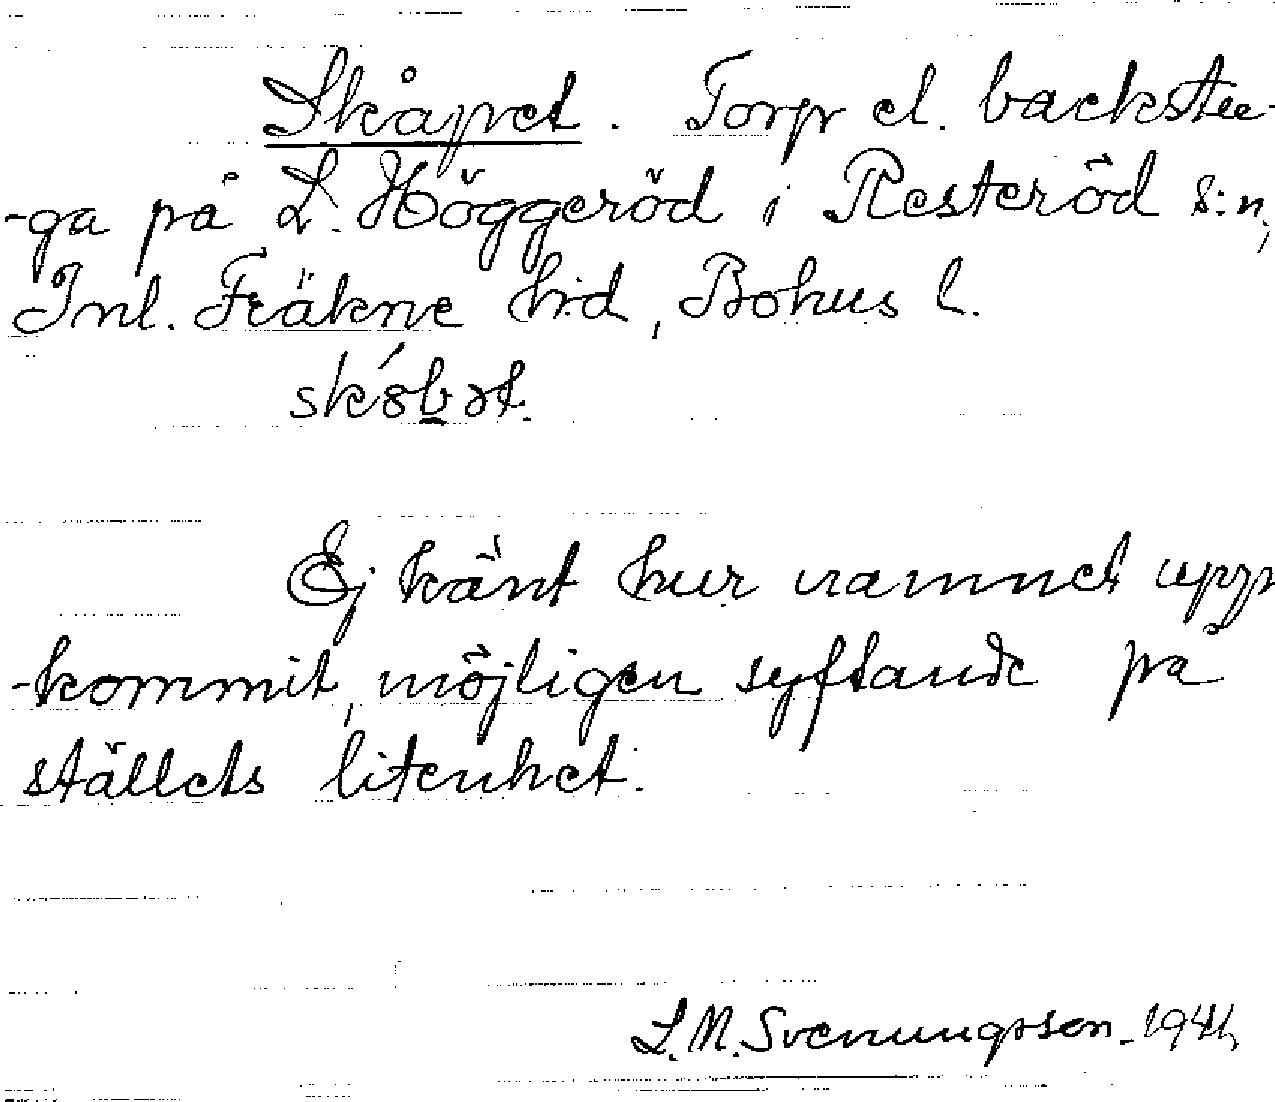 Skåpet. Torp el. backstu-
-ga på L. Höggeröd i Resteröd s:n,
Inl. Fräkne hd, Bohus l.
Ej känt hur namnet upp
-kommit, möjligen syftande på
ställets litenhet.
L. M. Svenungsson. 1941